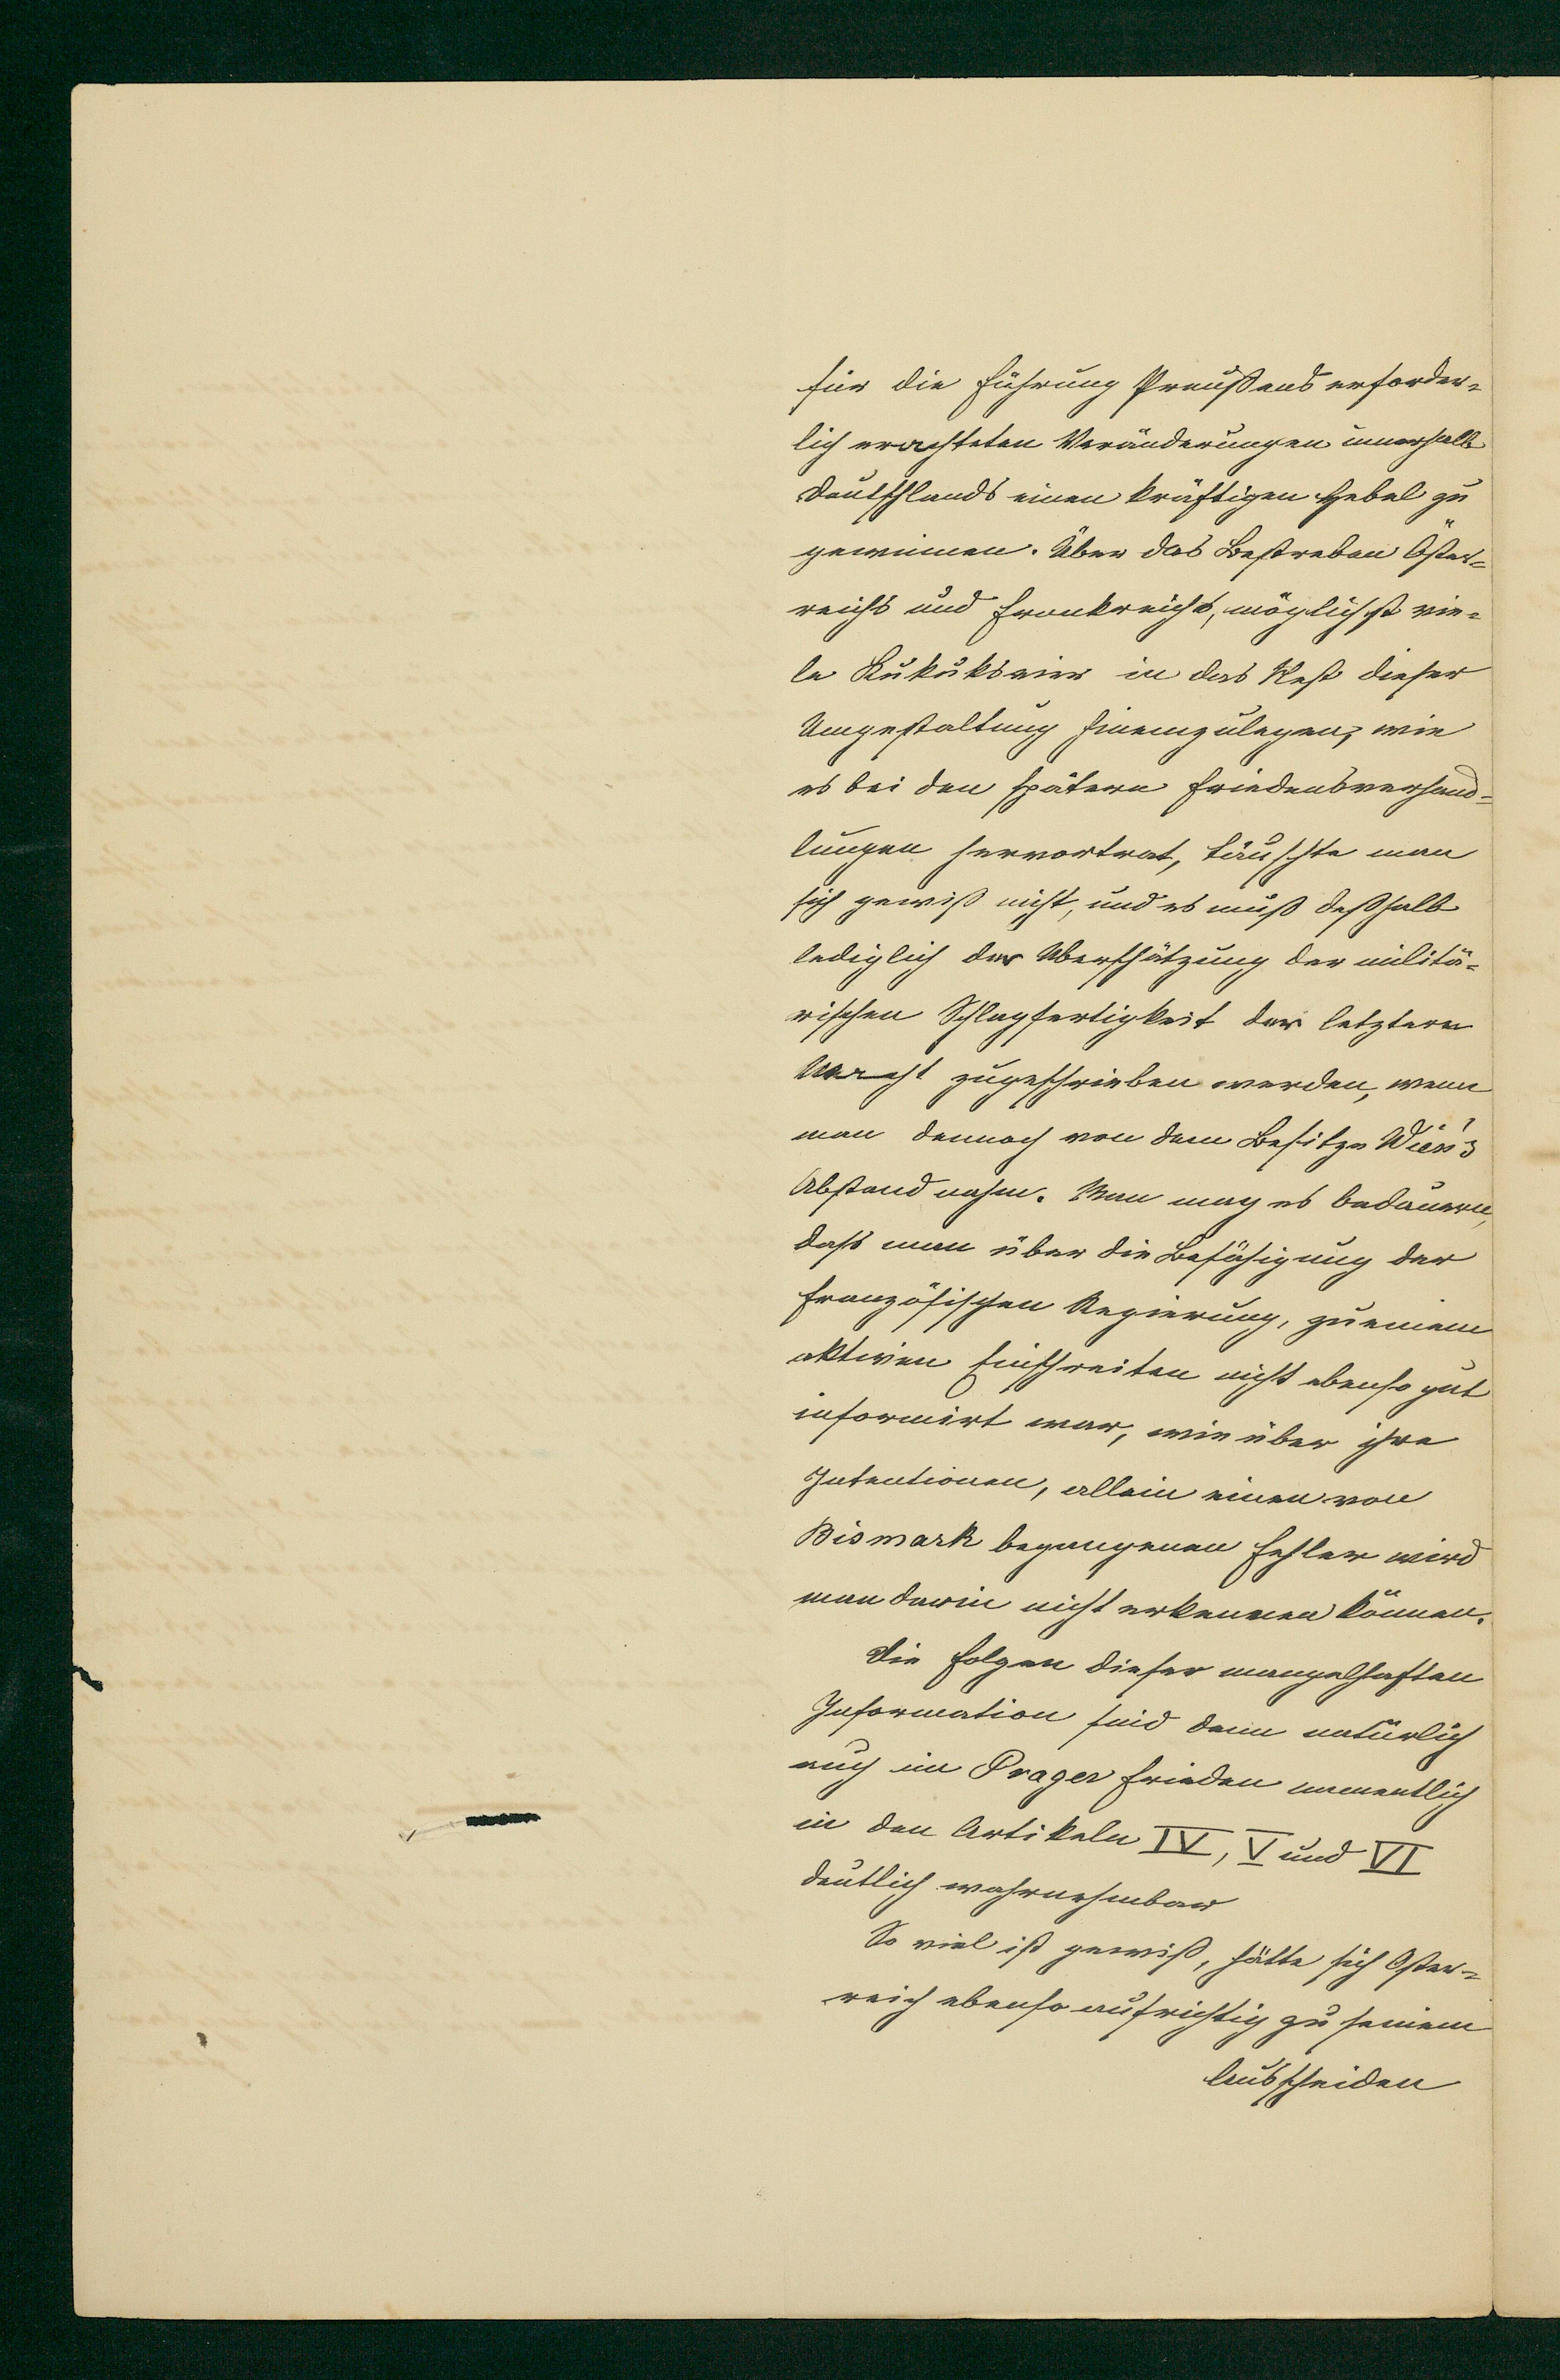 für die Führung Preußens erforder-
lich erachteten Veränderungen innerhalb
Deutschlands einen kräftigen Hebel zu
gewinnen. Über das Bestreben Öster-
reichs und Frankreichs, möglichst vie-
le Kukukseier in das Nest dieser
Umgestaltung hineinzulegen, wie
es bei den spätern Friedensverhand-
lungen hervortrat, täuschte man
sich gewiß nicht, und es muß deßhalb
lediglich der Überschätzung der militä-
rischen Schlagfertigkeit der letztern
Macht zugeschrieben werden, wenn
man dennoch von dem Besitze Wien's
Abstand nahm. Man mag es bedauern,
daß man über die Befähigung der
französischen Regierung, zu einem
aktiven Einschreiten nicht ebenso gut
informirt war, wie über ihre
Intentionen, allein einen von
Bismark begangenen Fehler wird
man darin nicht erkennen können.
Die Folgen dieser mangelhaften
Information sind denn natürlich
auch im Prager Frieden namentlich
in den Artikeln IV, V und VI
deutlich wahrnehmbar
So viel ist gewiß, hätte sich Oster-
reich ebenso aufrichtig zu seinem
Ausscheiden